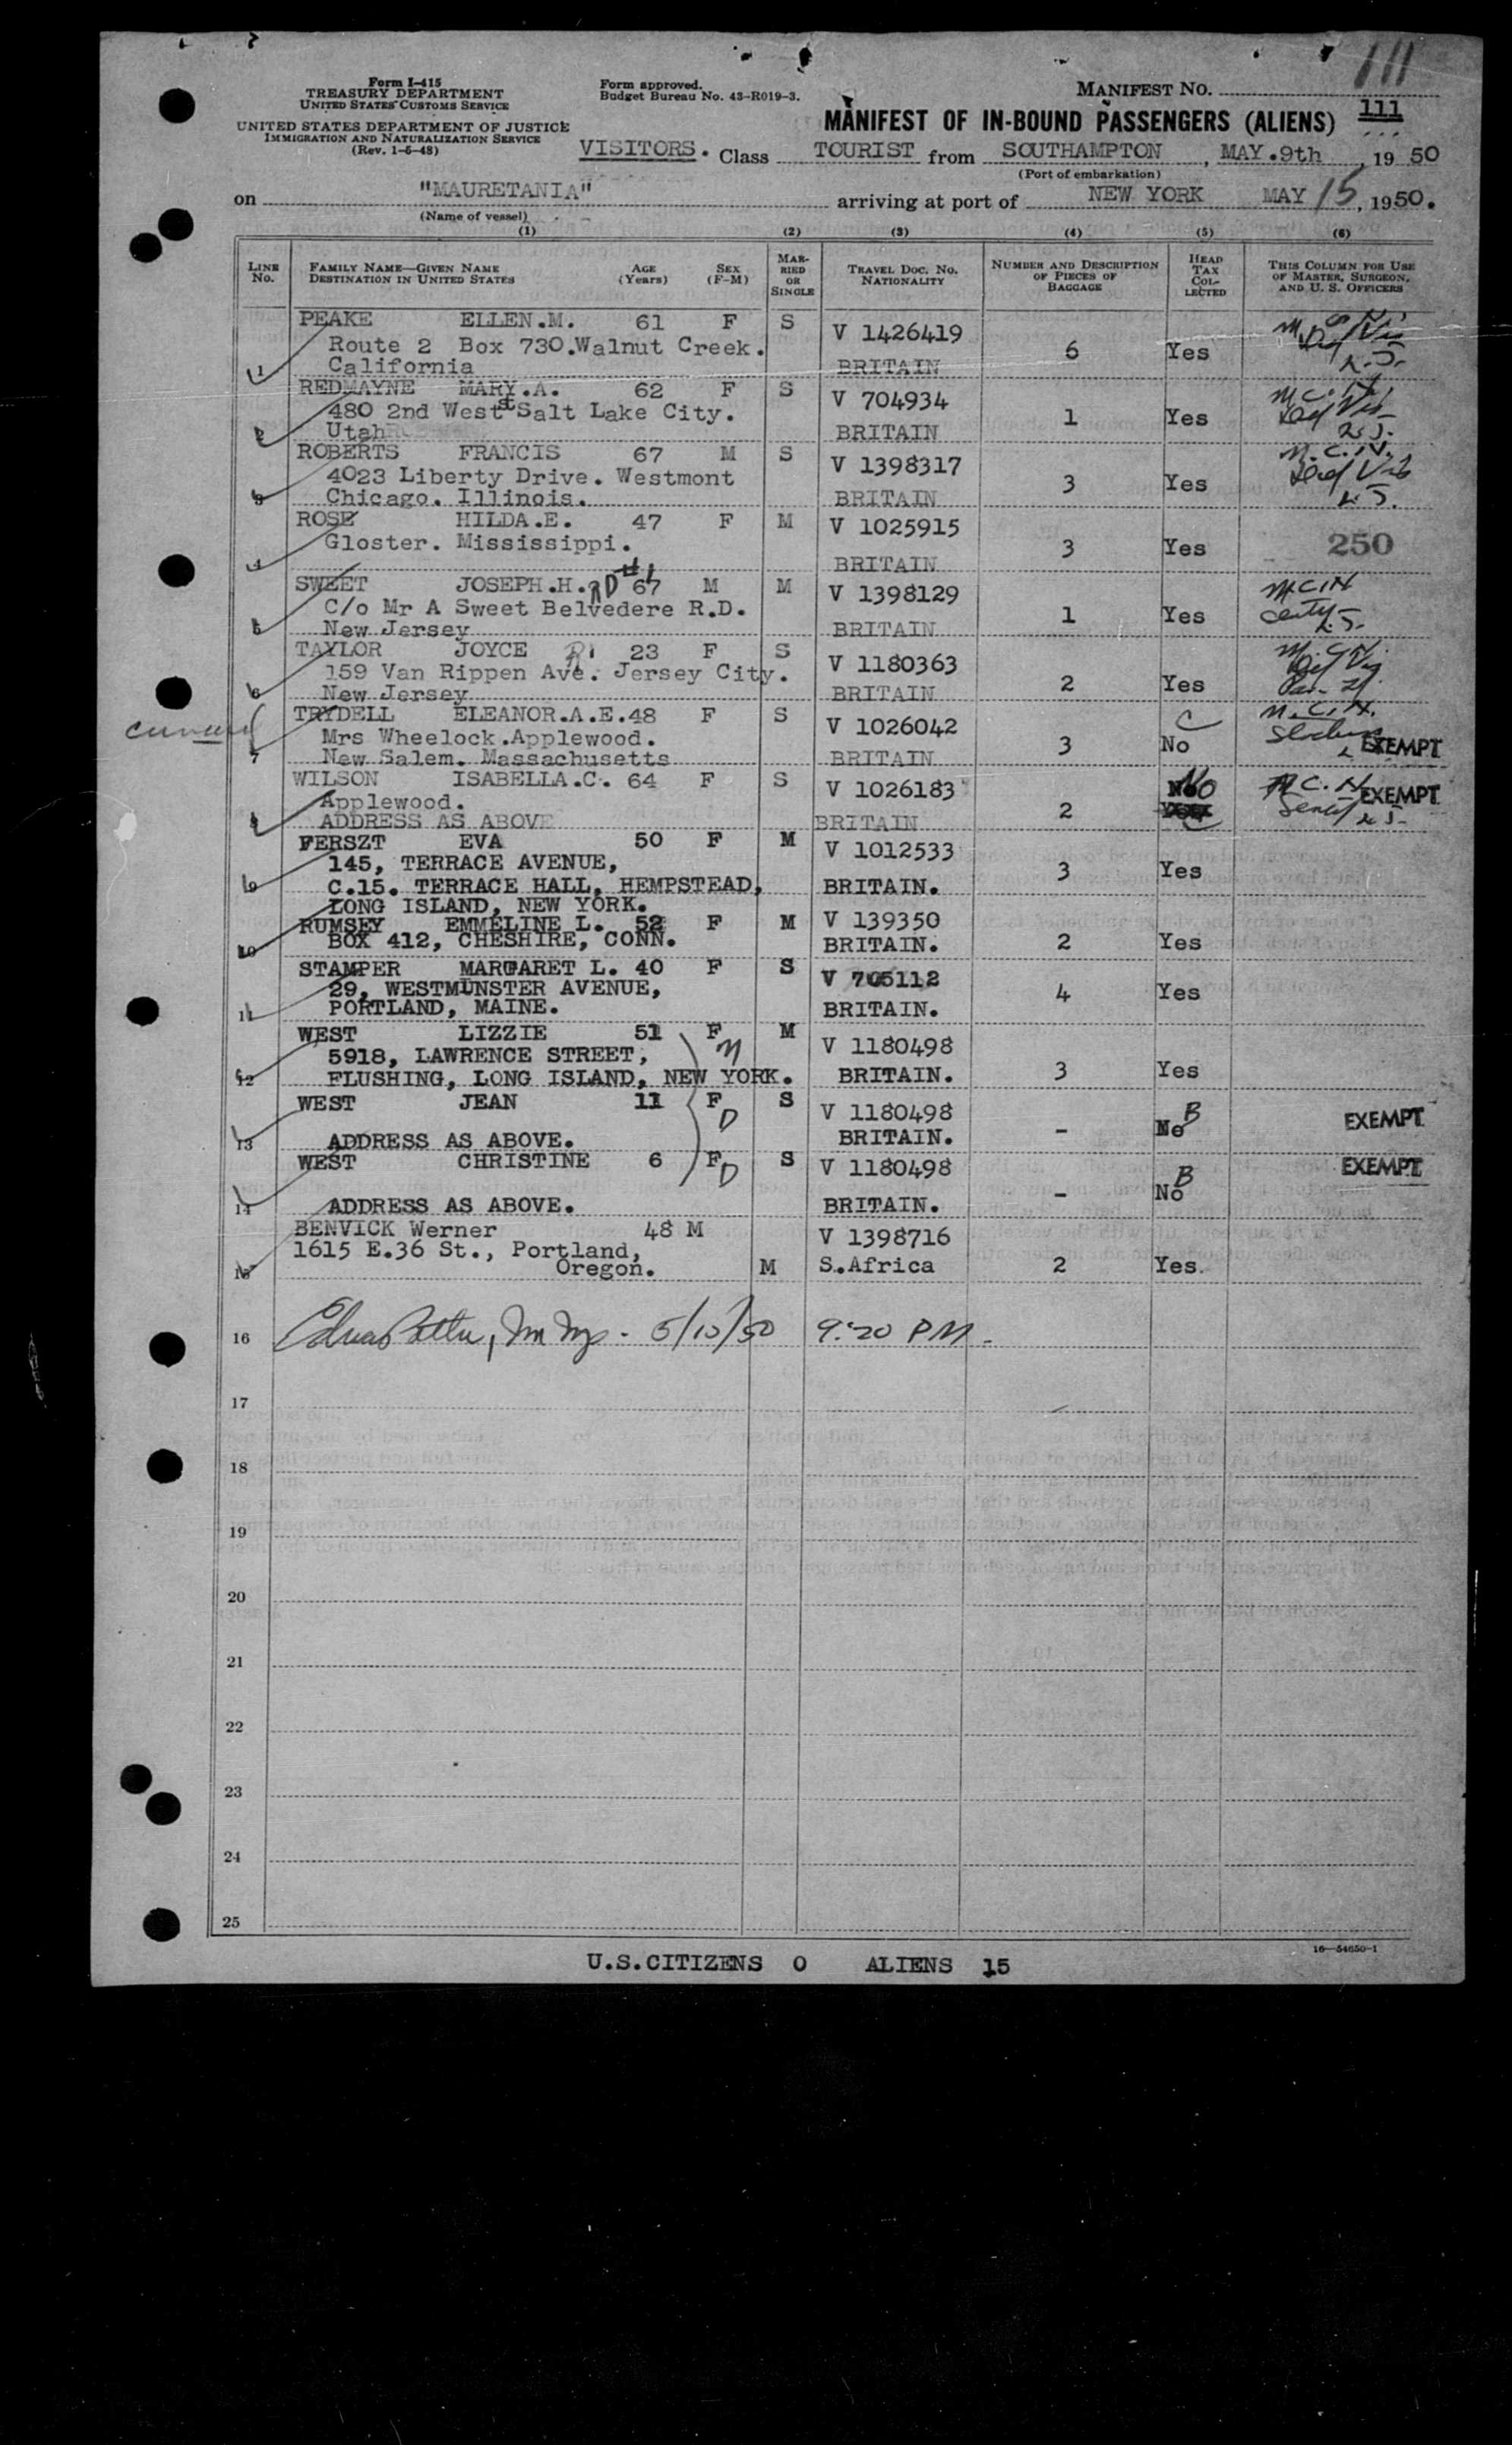 111
Form I-415
TREASURY DEPARTMENT
UNITED STATES CUSTOMS SERVICE
UNITED STATES DEPARTMENT OF JUSTICE
IMMIGRATION AND NATURALIZATION SERVICE
(Rev. 1-6-48)
Form approved.
Budget Bureau No. 43-R019-3.
MANIFEST NO.
111
MANIFEST OF IN-BOUND PASSENGERS (ALIENS)
VISITORS. Class TOURIST from SOUTHAMPTON, MAY.9th, 19 50
(Port of embarkation)
on "MAURETANIA" arriving at port of NEW YORK MAY 15, 1950.
(Name of vessel)
(1) (2) (3) (4) (5) (6)
LINE No. FAMILY NAME—GIVEN NAME DESTINATION IN UNITED STATES AGE (Years) SEX (F-M) MARRIED OR SINGLE TRAVEL DOC. NO. NATIONALITY NUMBER AND DESCRIPTION OF PIECES OF BAGGAGE HEAD TAX COLLECTED THIS COLUMN FOR USE OF MASTER, SURGEON, AND U. S. OFFICERS
PEAKE ELLEN.M. 61 F S V 1426419
Route 2 Box 730.Walnut Creek. 6 Yes
1 California BRITAIN
REDMAYNE MARY.A. 62 F S V 704934
480 2nd West St Salt Lake City. 1 Yes
2 Utah BRITAIN
ROBERTS FRANCIS 67 M S V 1398317 M.C.N.
4023 Liberty Drive. Westmont 3 Yes
3 Chicago. Illinois. BRITAIN
ROSE HILDA.E. 47 F M V 1025915
Gloster. Mississippi. 3 Yes 250
4 BRITAIN
SWEET JOSEPH.H. RD #1 67 M M V 1398129 MCIN
C/o Mr A Sweet Belvedere R.D. 1 Yes
5 New Jersey BRITAIN
TAYLOR JOYCE 23 F S V 1180363
159 Van Rippen Ave. Jersey City. 2 Yes
6 New Jersey BRITAIN
TRYDELL ELEANOR.A.E.48 F S V 1026042 C M.C.N.
Cunard
Mrs Wheelock.Applewood. 3 No EXEMPT
7 New Salem. Massachusetts BRITAIN
WILSON ISABELLA.C. 64 F S V 1026183 No M.C.N. EXEMPT
Applewood. 2
8 ADDRESS AS ABOVE BRITAIN
FERSZT EVA 50 F M V 1012533
145, TERRACE AVENUE, 3 Yes
9 C.15. TERRACE HALL, HEMPSTEAD, BRITAIN.
LONG ISLAND, NEW YORK.
RUMSEY EMMELINE L. 52 F M V 139350
10 BOX 412, CHESHIRE, CONN. BRITAIN. 2 Yes
STAMPER MARGARET L. 40 F S V 705112
29, WESTMUNSTER AVENUE, 4 Yes
11 PORTLAND, MAINE. BRITAIN.
WEST LIZZIE 51 F M V 1180498
5918, LAWRENCE STREET, M
12 FLUSHING, LONG ISLAND, NEW YORK. BRITAIN. 3 Yes
WEST JEAN 11 F S V 1180498 B EXEMPT
D
13 ADDRESS AS ABOVE. BRITAIN. - No
WEST CHRISTINE 6 F D S V 1180498 B EXEMPT
14 ADDRESS AS ABOVE. BRITAIN. - No
BENVICK Werner 48 M V 1398716
1615 E.36 St., Portland,
15 Oregon. M S.Africa 2 Yes.
16 5/15/50 9:20 PM.
17
18
19
20
21
22
23
24
25
16—54650-1
U.S.CITIZENS 0 ALIENS 15